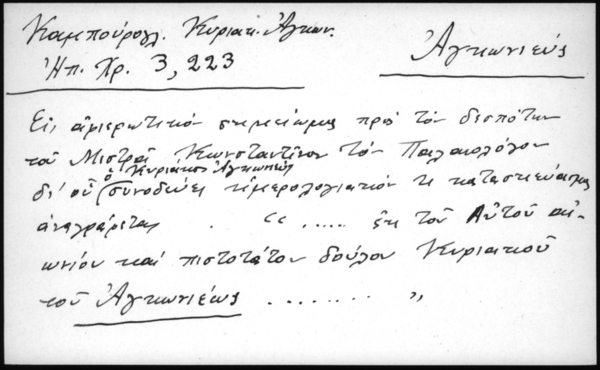 Καμπούρογλ. Κυριακ. Ἀγκων.
Ἠπ. Χρ. 3, 223
Ἀγκωνιεύς
Εἰς ἀφιερωτικόν σημείωμα πρός τόν δεσπότην
τοῦ Μιστρᾶ Κωνσταντῖνον τόν Παλαιολόγον
ὁ Κυριάκος Ἀγκωνιεύς
δι' οὗ συνοδεύει ἡμερολογιακόν τι κατασκεύασμα
ἀναγράφεται . “ ..... ἐκ τοῦ Αὐτοῦ οἰ-
ωνίου καί πιστοτάτου δούλου Κυριακοῦ
τοῦ Ἀγκωνιέως ........ ”